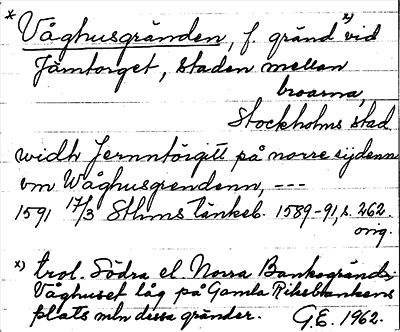 * Våghusgränden, f. gränd x) vid
Järntorget, staden mellan
broarna,
Stockholms stad
widh Jernntörgitt på norre sijdenn
om Wåghusgrendenn, ---
1591 17/3 Sthms tänkeb. 1589-91, s. 262.
orig.
x) trol. Södra el. Norra Bankogränd;
Våghuset låg på Gamla Riksbankens
plats mln dessa gränder. G.E. 1962.